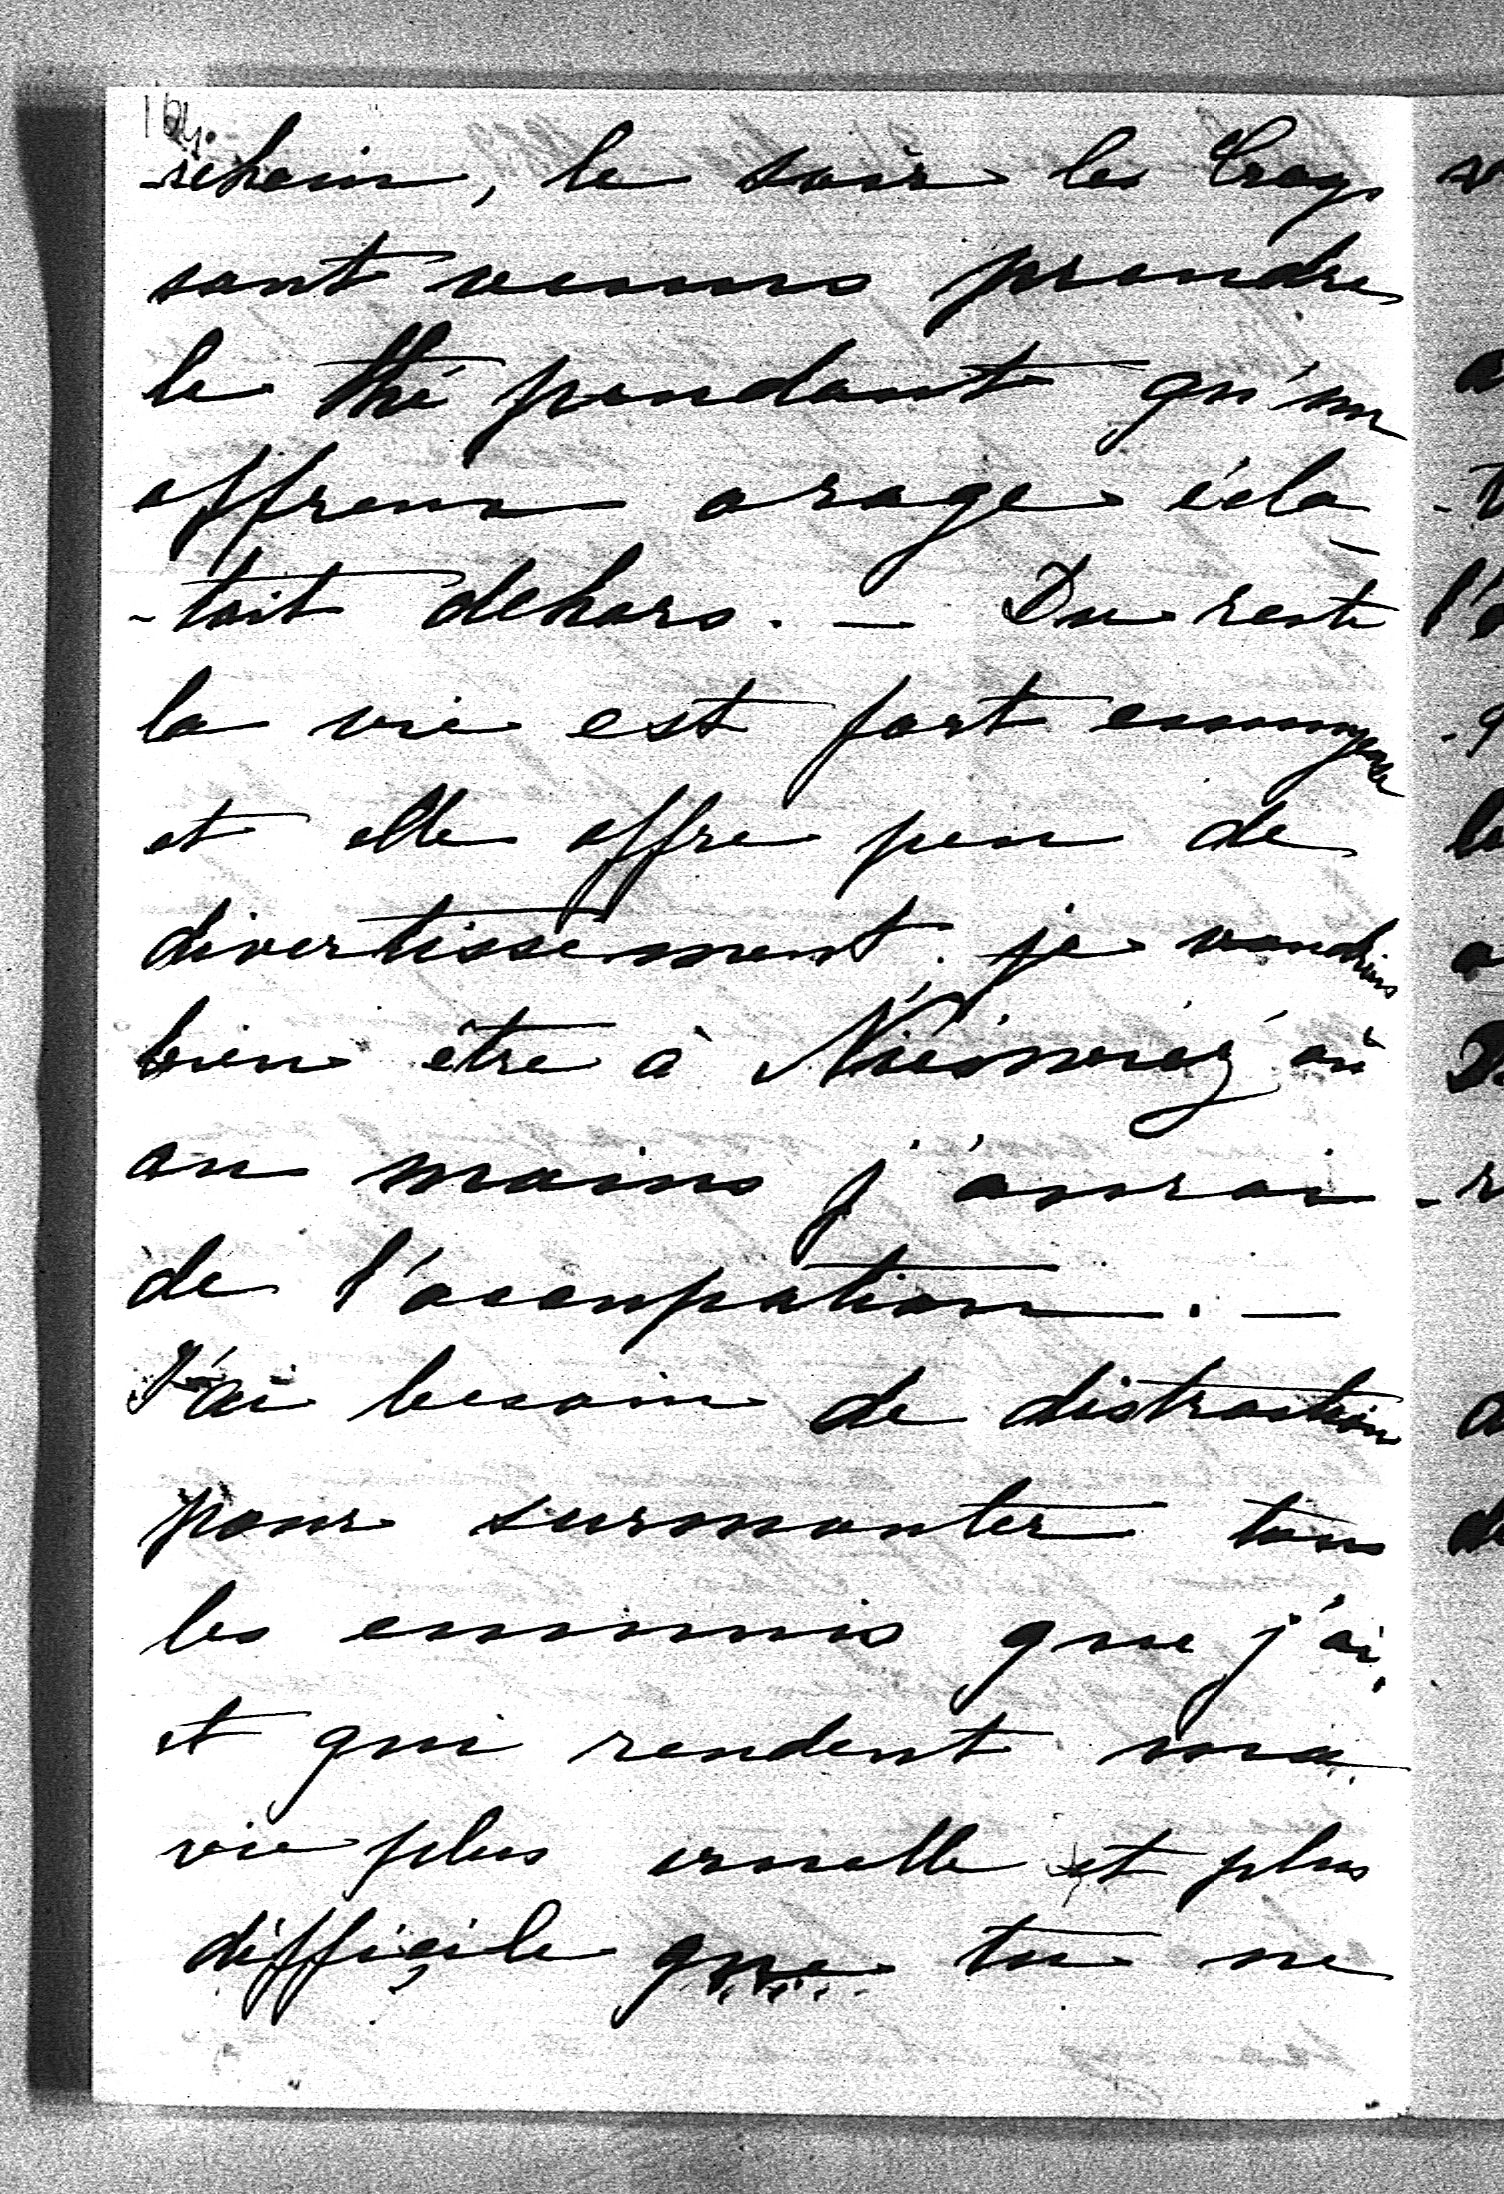 164.
-rchain, le soir les Croys
sont venus prendre
le thé pendant qu'un
affreux orage écla
-tait dehors. — Du reste
la vie est fort ennuyeuse
et elle offre peu de
divertissement. je voudrais
bien être à où
au moins j'aurai
de l'occupation. —
J'ai besoin de distraction
pour surmonter tous
les ennuis que j'ai,
et qui rendent ma
vie plus cruelle et plus
difficile que tu ne